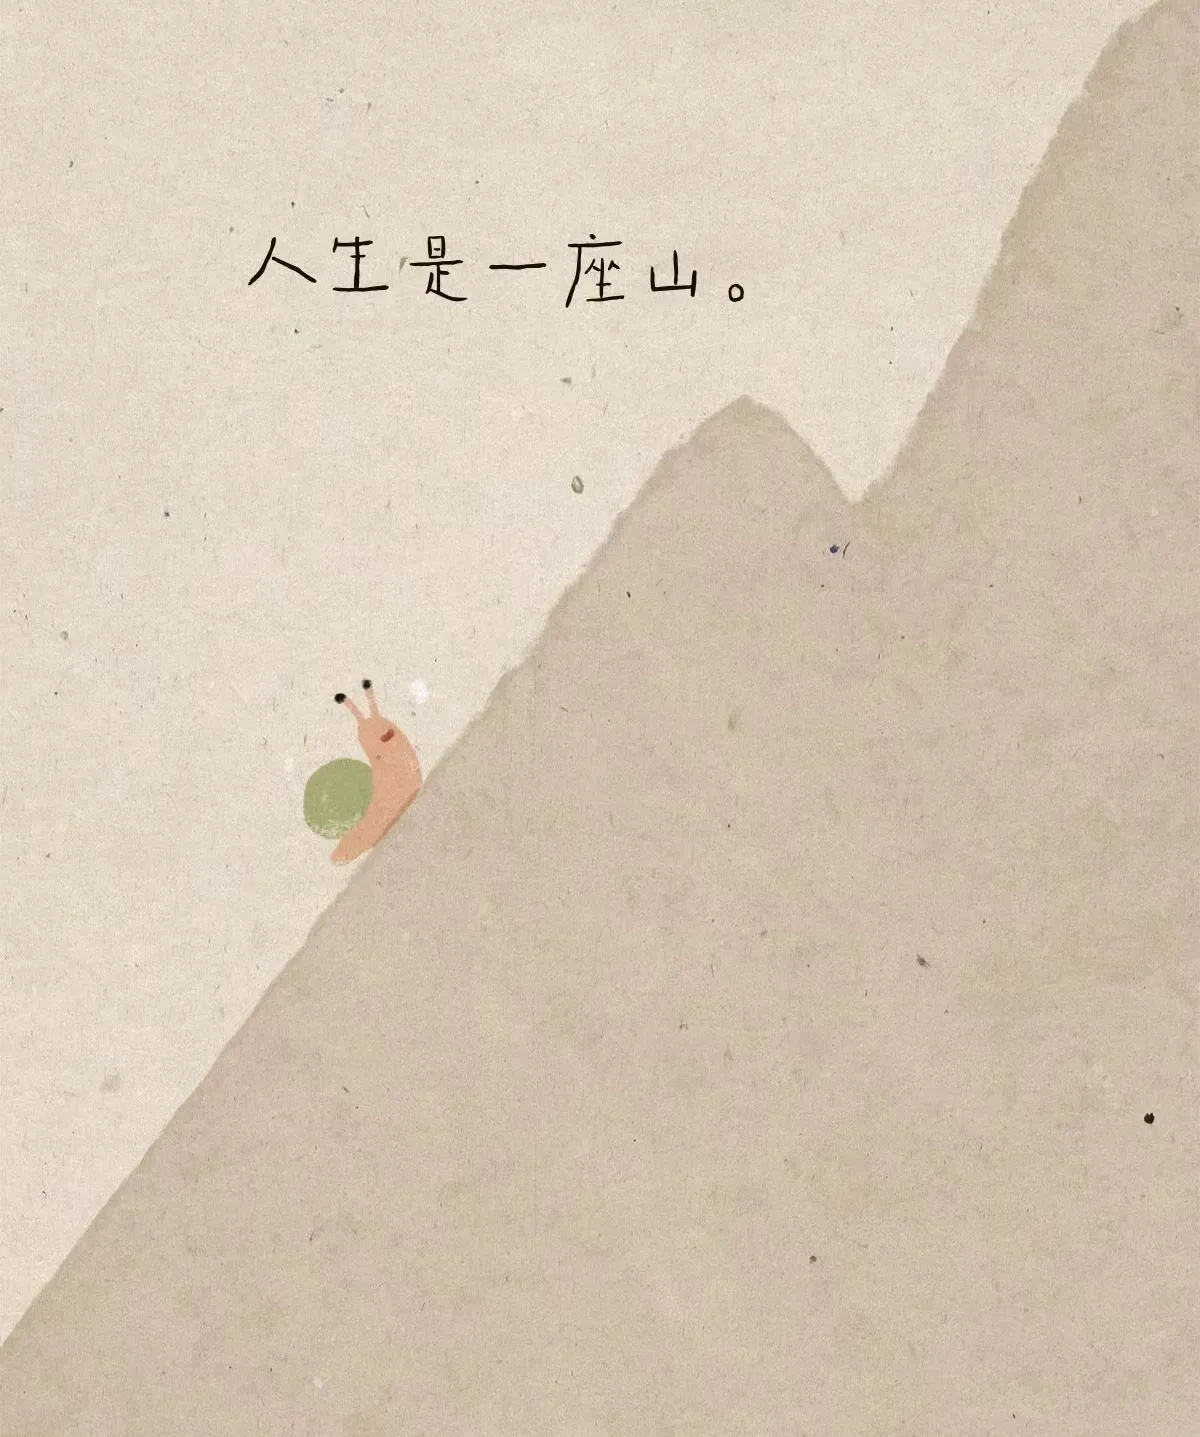 人生是一座山。